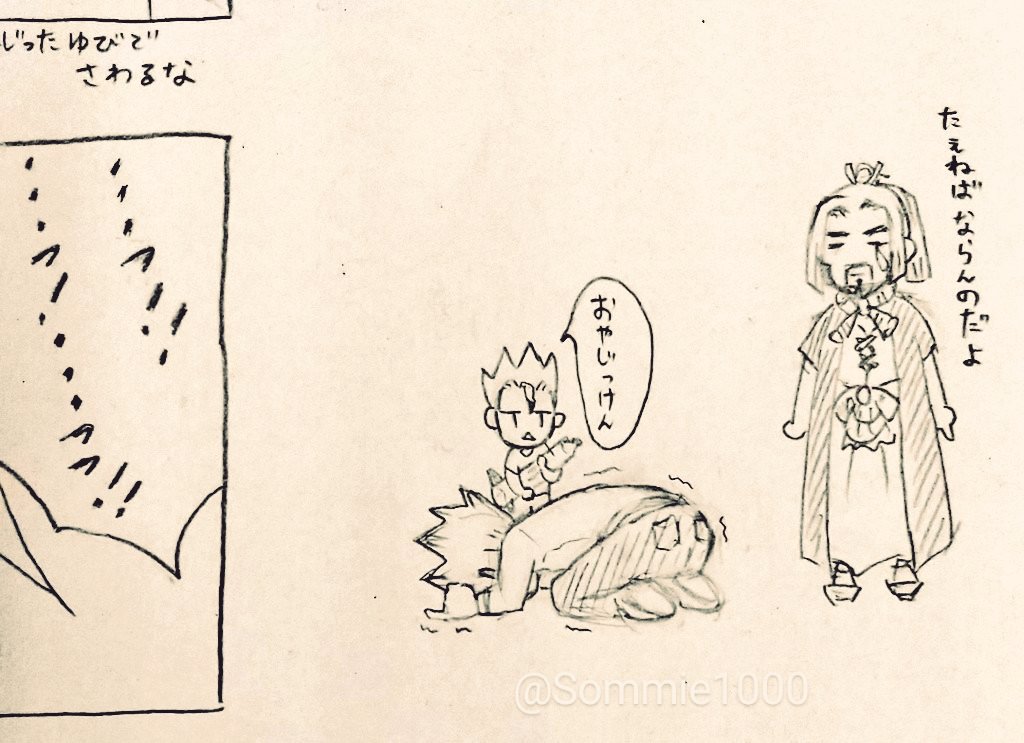 たえねばならんのだよ
おやじっけん
じったゆびで
さわるな
・・・ッ!・・・・ッッ!!
・・・ッ!!
@Sommie1000